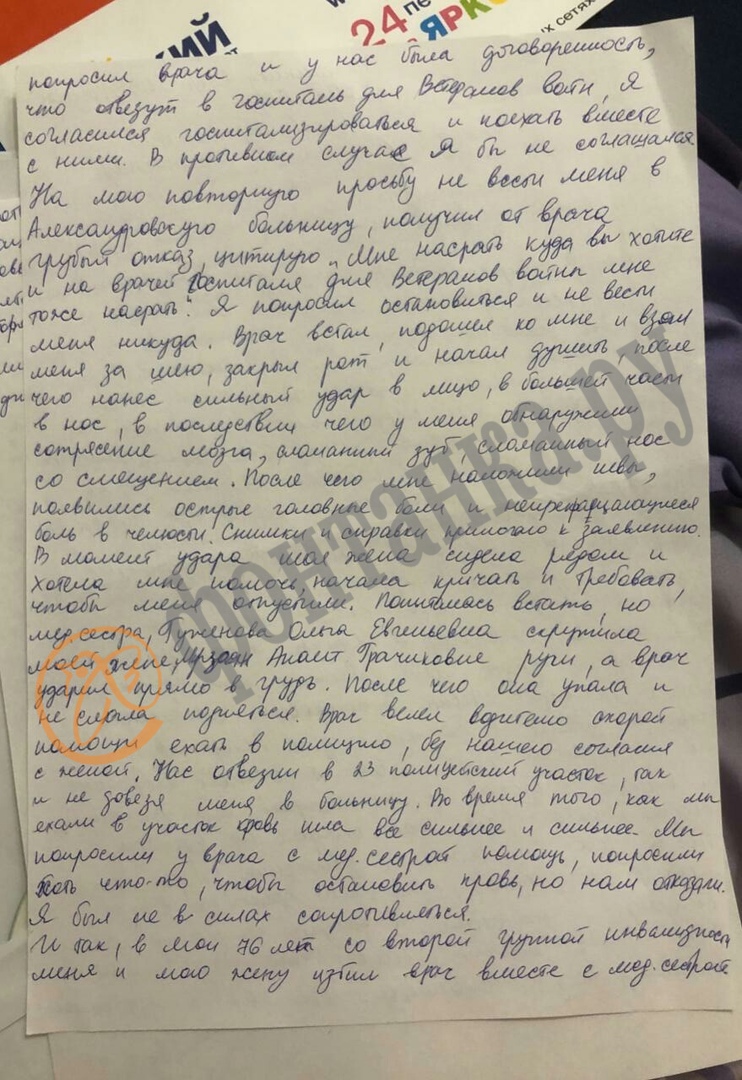 24
ЯРКО
х сетях
попросил врача и у нас была договоренность,
что отвезут в госпиталь для Ветеранов войн, я
согласился госпитализироваться и поехать вместе
с ними. В противном случае я бы не соглашался.
На мою повторную просьбу не везти меня в
Александровскую больницу, получил от врача
грубый отказ, цитирую „Мне насрать куда вы хотите
и на врачей Госпиталя для Ветеранов войны мне
тоже насрать". Я попросил остановиться и не везти
меня никуда. Врач встал, подошел ко мне и взял
меня за шею, закрыл рот и начал душить, после
чего нанес сильный удар в лицо, в большей части
в нос, в последствии чего у меня обнаружили
сотрясение мозга, сломанный зуб, сломанный нос
со смещением. После чего мне наложили швы,
появились острые головные боли и непрекращающиеся
боль в челюсти. Снимки и справки прилагаю к заявлению.
В момент удара моя жена сидела рядом и
хотела мне помочь, начала кричать и требовать,
чтобы меня отпустили. Попыталась встать, но
мед.сестра, Ольга Евгеньевна скрутила
моей жене, Грачиковне руки, а врач
ударил прямо в грудь. После чего она упала и
не смогла подняться. Врач велел водителю скорой
помощи ехать в полицию, без нашего согласия
с женой. Нас отвезли в 23 полицейский участок, так
и не довезя меня в больницу. Во время того, как мы
ехали в участок кровь шла все сильнее и сильнее. Мы
попросили у врача с мед.сестрой помощь, попросили
хоть что-то, чтобы остановить кровь, но нам отказали.
Я был не в силах сопротивляться.
И так, в мои 76 лет со второй группой инвалидности
меня и мою жену избил врач вместе с мед.сестрой
фонтанка.ру